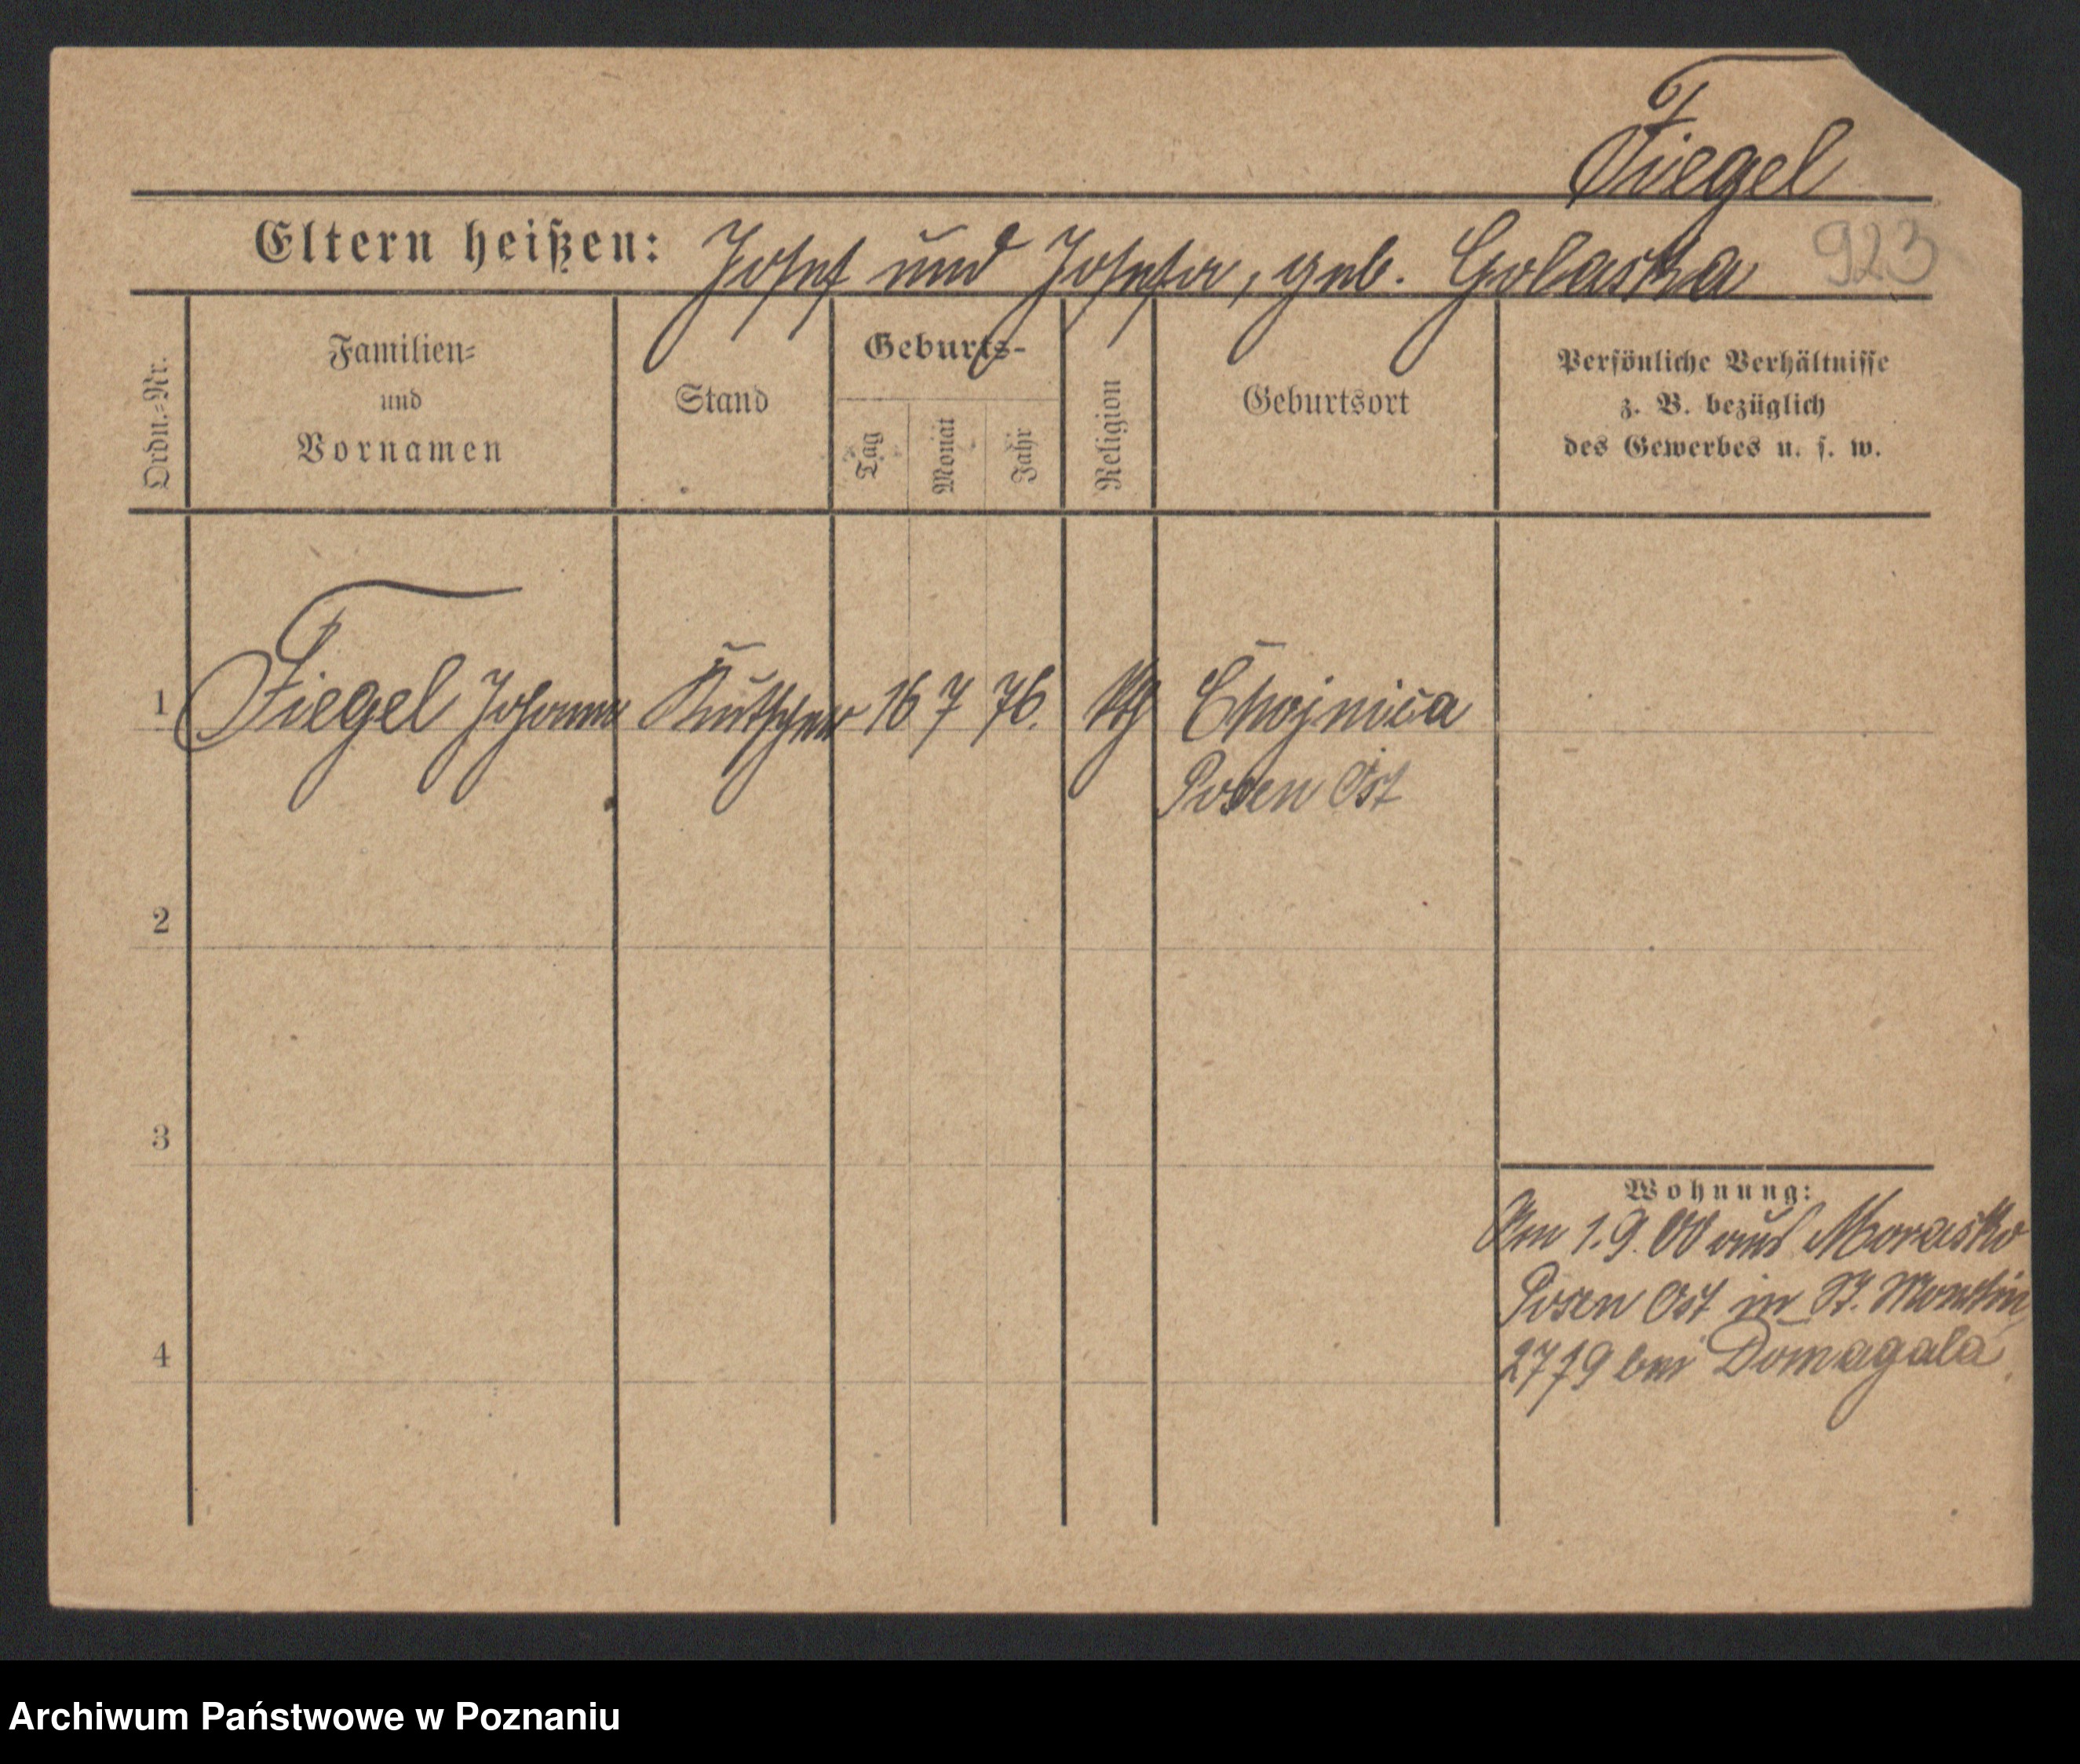 Fiegel
Eltern heißen: Josef und Josefa, geb. Golaska 923
Ordn.-Nr.
Familien-
und
Vornamen
Stand
Geburts-
Tag
Monat
Jahr
Religion
Geburtsort
Persönliche Verhältnisse
z. B. bezüglich
des Gewerbes u. s. w.
1 Fiegel Johann Kutscher 16 7 76. kth Chojnica
Posen Ost
2
3
4
Wohnung:
Am 1.9.00 aus Morasko
Posen Ost in St. Martin
27 bei Domagala
Archiwum Państwowe w Poznaniu